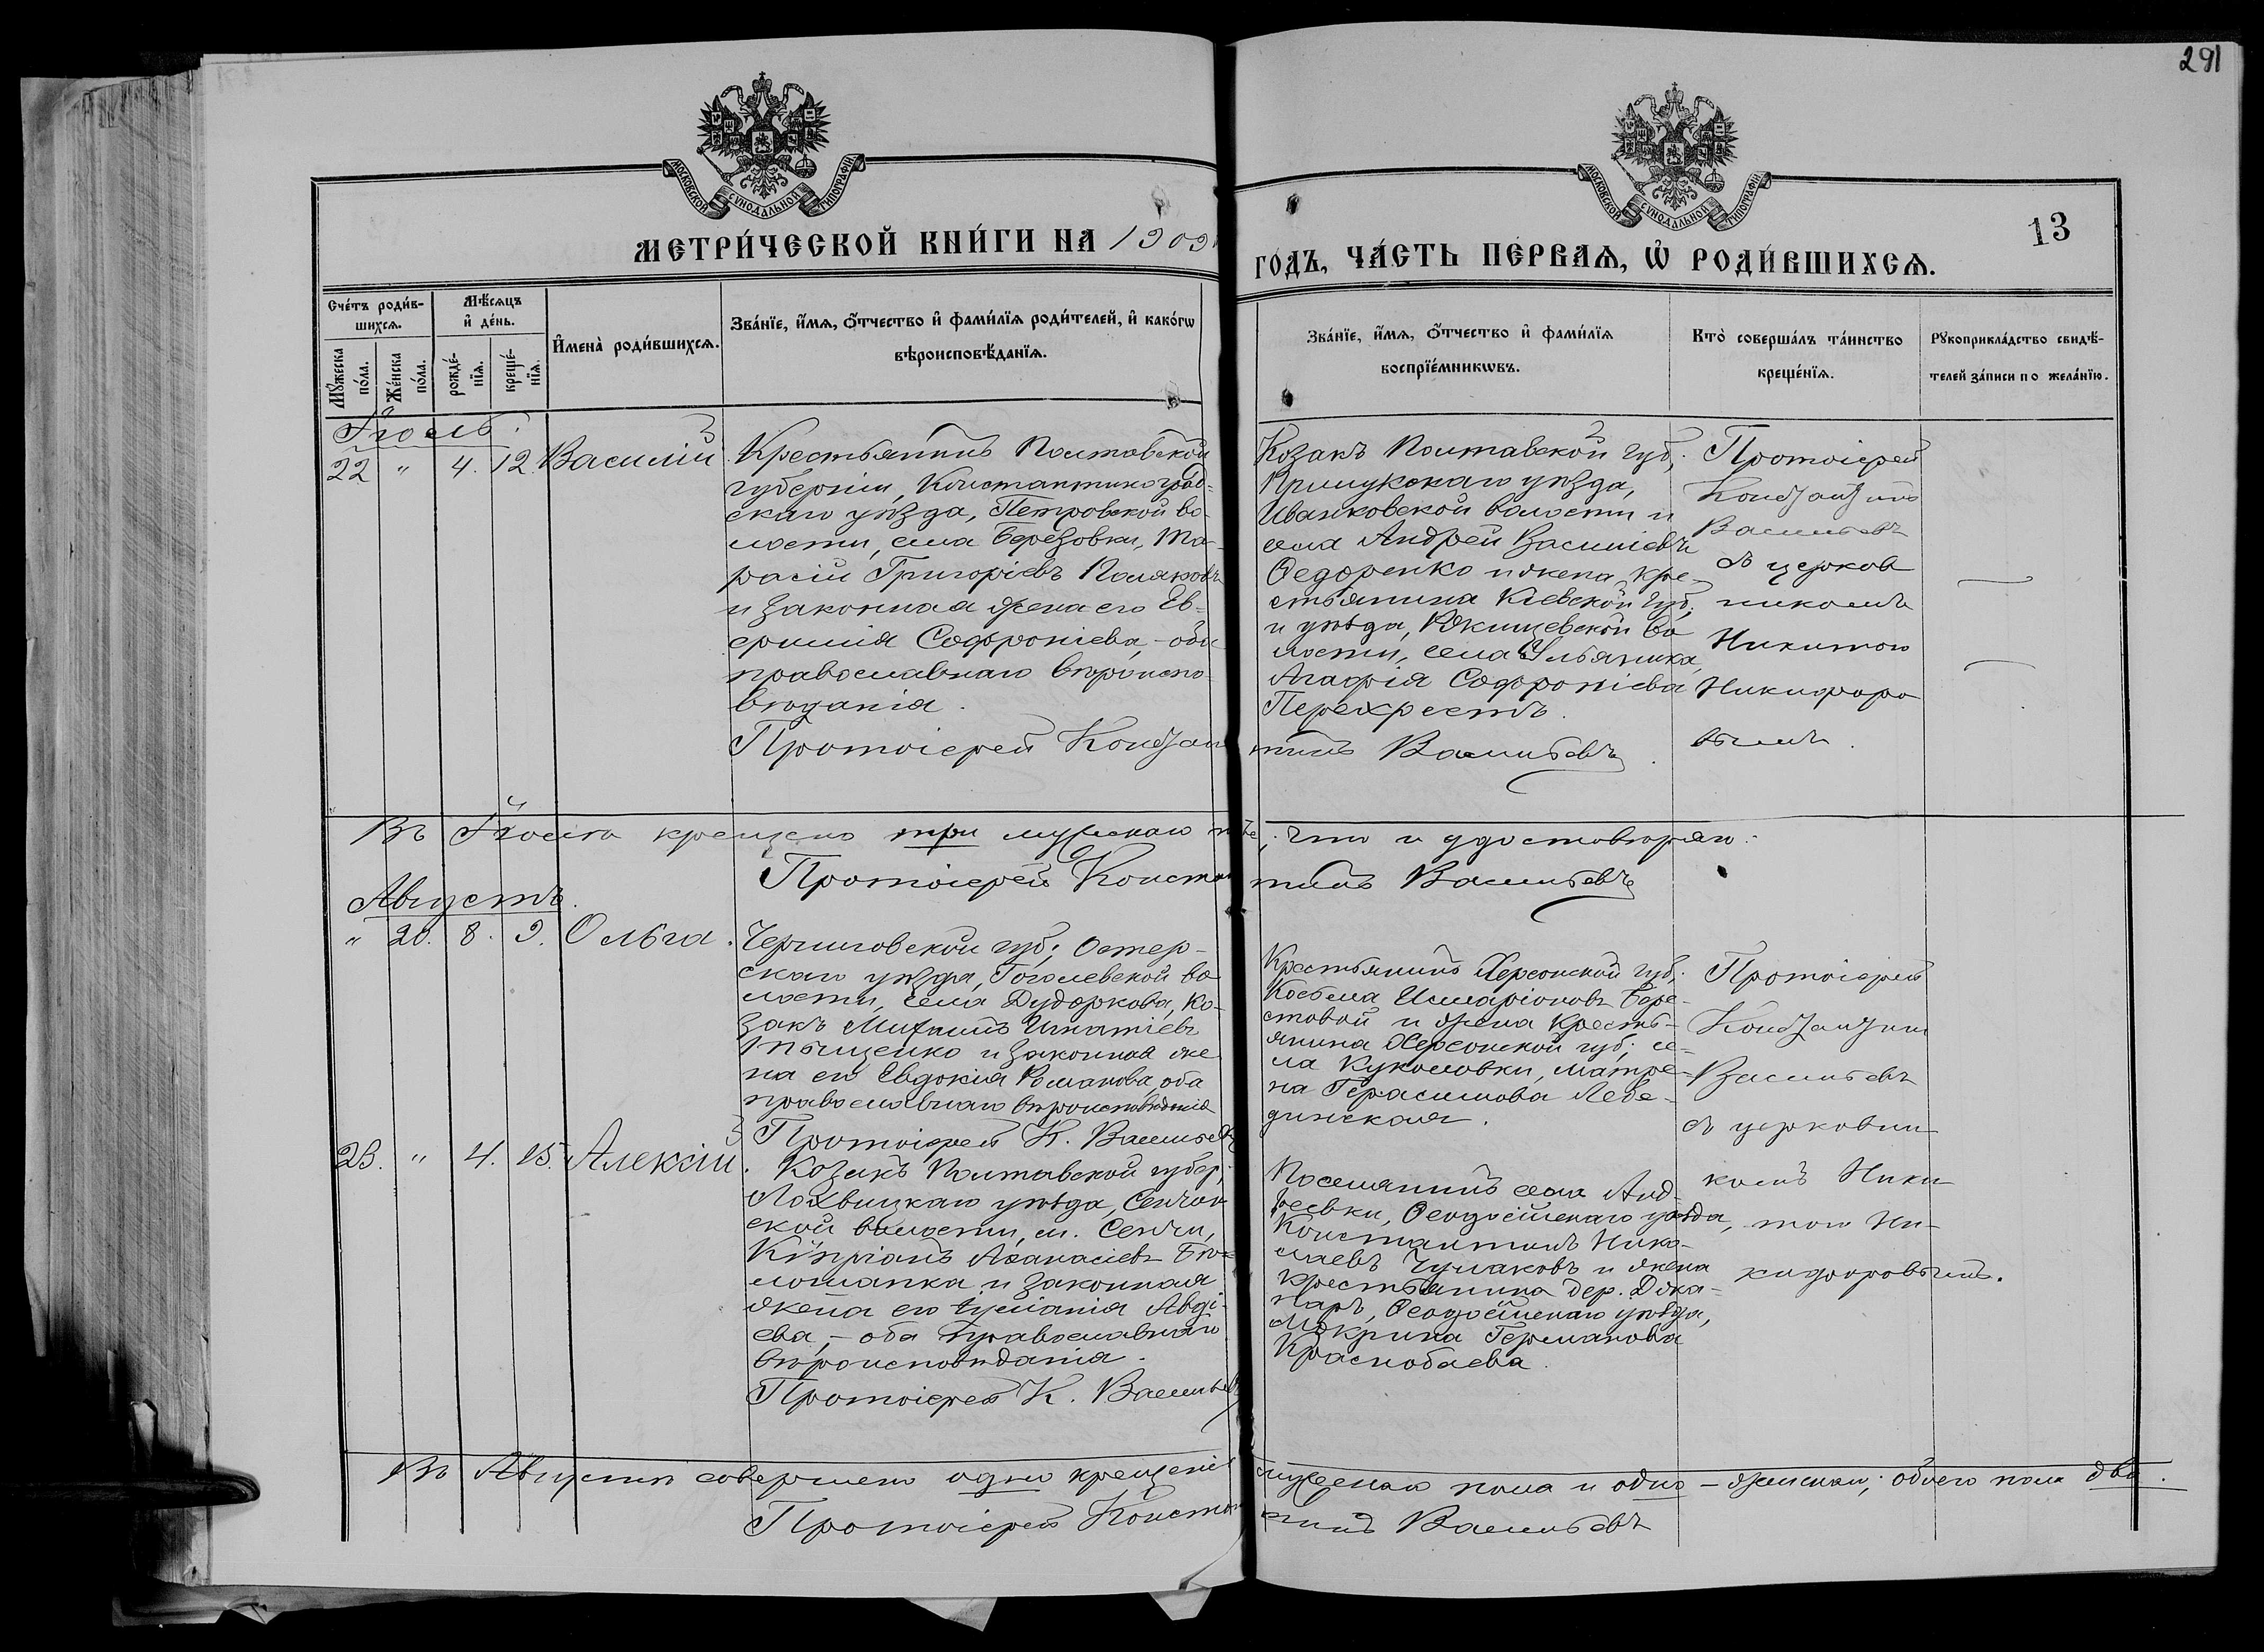 291
МОСКОВСКОЙ СУНОДАЛЬНОЙ ТИПОГРАФІИ
МОСКОВСКОЙ СУНОДАЛЬНОЙ ТИПОГРАФІИ
13
МЕТРИ́ЧЕСКОЙ КНИ́ГИ НА 1909
ГОДЪ, ЧА́СТЬ ПЕ́РВАѦ, Ѡ҆ РОДИ́ВШИХСѦ.
Сче́тъ роди́в-
шихсѧ.
Мꙋ́жеска
по́ла.
Же́нска
по́ла.
Мѣ́сѧцъ
и҆ де́нь.
рожде́-
нїѧ.
креще́-
нїѧ.
И҆мена̀ роди́вшихсѧ.
Зва́нїе, и҆́мѧ, ѻ҆́тчество и҆ фами́лїѧ роди́телей, и҆ како́гѡ
вѣроисповѣ́данїѧ.
Зва́нїе, и҆́мѧ, ѻ҆́тчество и҆ фами́лїѧ
воспрїе́мникѡвъ.
Кто̀ соверша́лъ та́инство
креще́нїѧ.
Рꙋкоприкла́дство свидѣ́-
телей за́писи по жела́нїю.
Іюль.
22 " 4. 12. Василій
Крестьянинъ Полтавской
губерніи, Константиноград-
скаго уѣзда, Петровской во-
лости, села Березовки, Та-
расій Григоріевъ Поляковъ
и законная жена его Ев-
фимія Софроніева, – оба
православнаго вѣроиспо-
вѣданія.
Протоіерей Константинъ Васильевъ.
Козакъ Полтавской губ.,
Прилукскаго уѣзда,
Иванковской волости и
села Андрей Василіевъ
Ѳедоренко и жена кре-
стьянина Кіевской губ.
и уѣзда, волости, села Ульяника,
Агафія Софроніева
Перехрестъ.
Протоіерей
Константинъ
Васильевъ
съ церков
никомъ
Никитою
Никифоро
вымъ.
Въ Іюлѣ крещено три мужскаго пола, что и удостовѣряю.
Протоіерей Константинъ Васильевъ
Августъ.
" 20. 8. 9. Ольга.
Черниговской губ., Остер-
скаго уѣзда, Гоголевской во-
лости, села Дудоркова, ко-
закъ Михаилъ Игнатіевъ
и законная же-
на его Евдокія Романова, оба
православнаго вѣроисповѣданія
Протоіерей К. Васильевъ
Крестьянинъ Херсонской губ.
Косьма Иларіоновъ Бере-
стовой и жена кресть-
янина Херсонской губ., се-
ла Куколовки, Матре-
на Герасимова Лебе-
динская.
Протоіерей
Константинъ
Васильевъ
съ церковни
комъ Ники
тою Ни-
кифоровымъ.
23. " 4. 15. Алексій.
Козакъ Полтавской губер.,
Лохвицкаго уѣзда, Сенчан
ской волости, м. Сенчи,
Кипріанъ Аѳанасіевъ законная
жена его Іуліанія Авді-
ева, – оба православнаго
вѣроисповѣданія.
Протоіерей К. Васильевъ
Поселянинъ села Анд-
реевки, Ѳеодосійскаго уѣзда,
Константинъ Нико-
лаевъ Чумаковъ и жена
крестьянина дер. Джа-
Ѳеодосійскаго уѣзда,
Макрина Германова
Краснобаева.
Въ Августѣ совершено одно крещеніе мужскаго пола и одно – женскаго; обоего пола два.
Протоіерей Константинъ Васильевъ